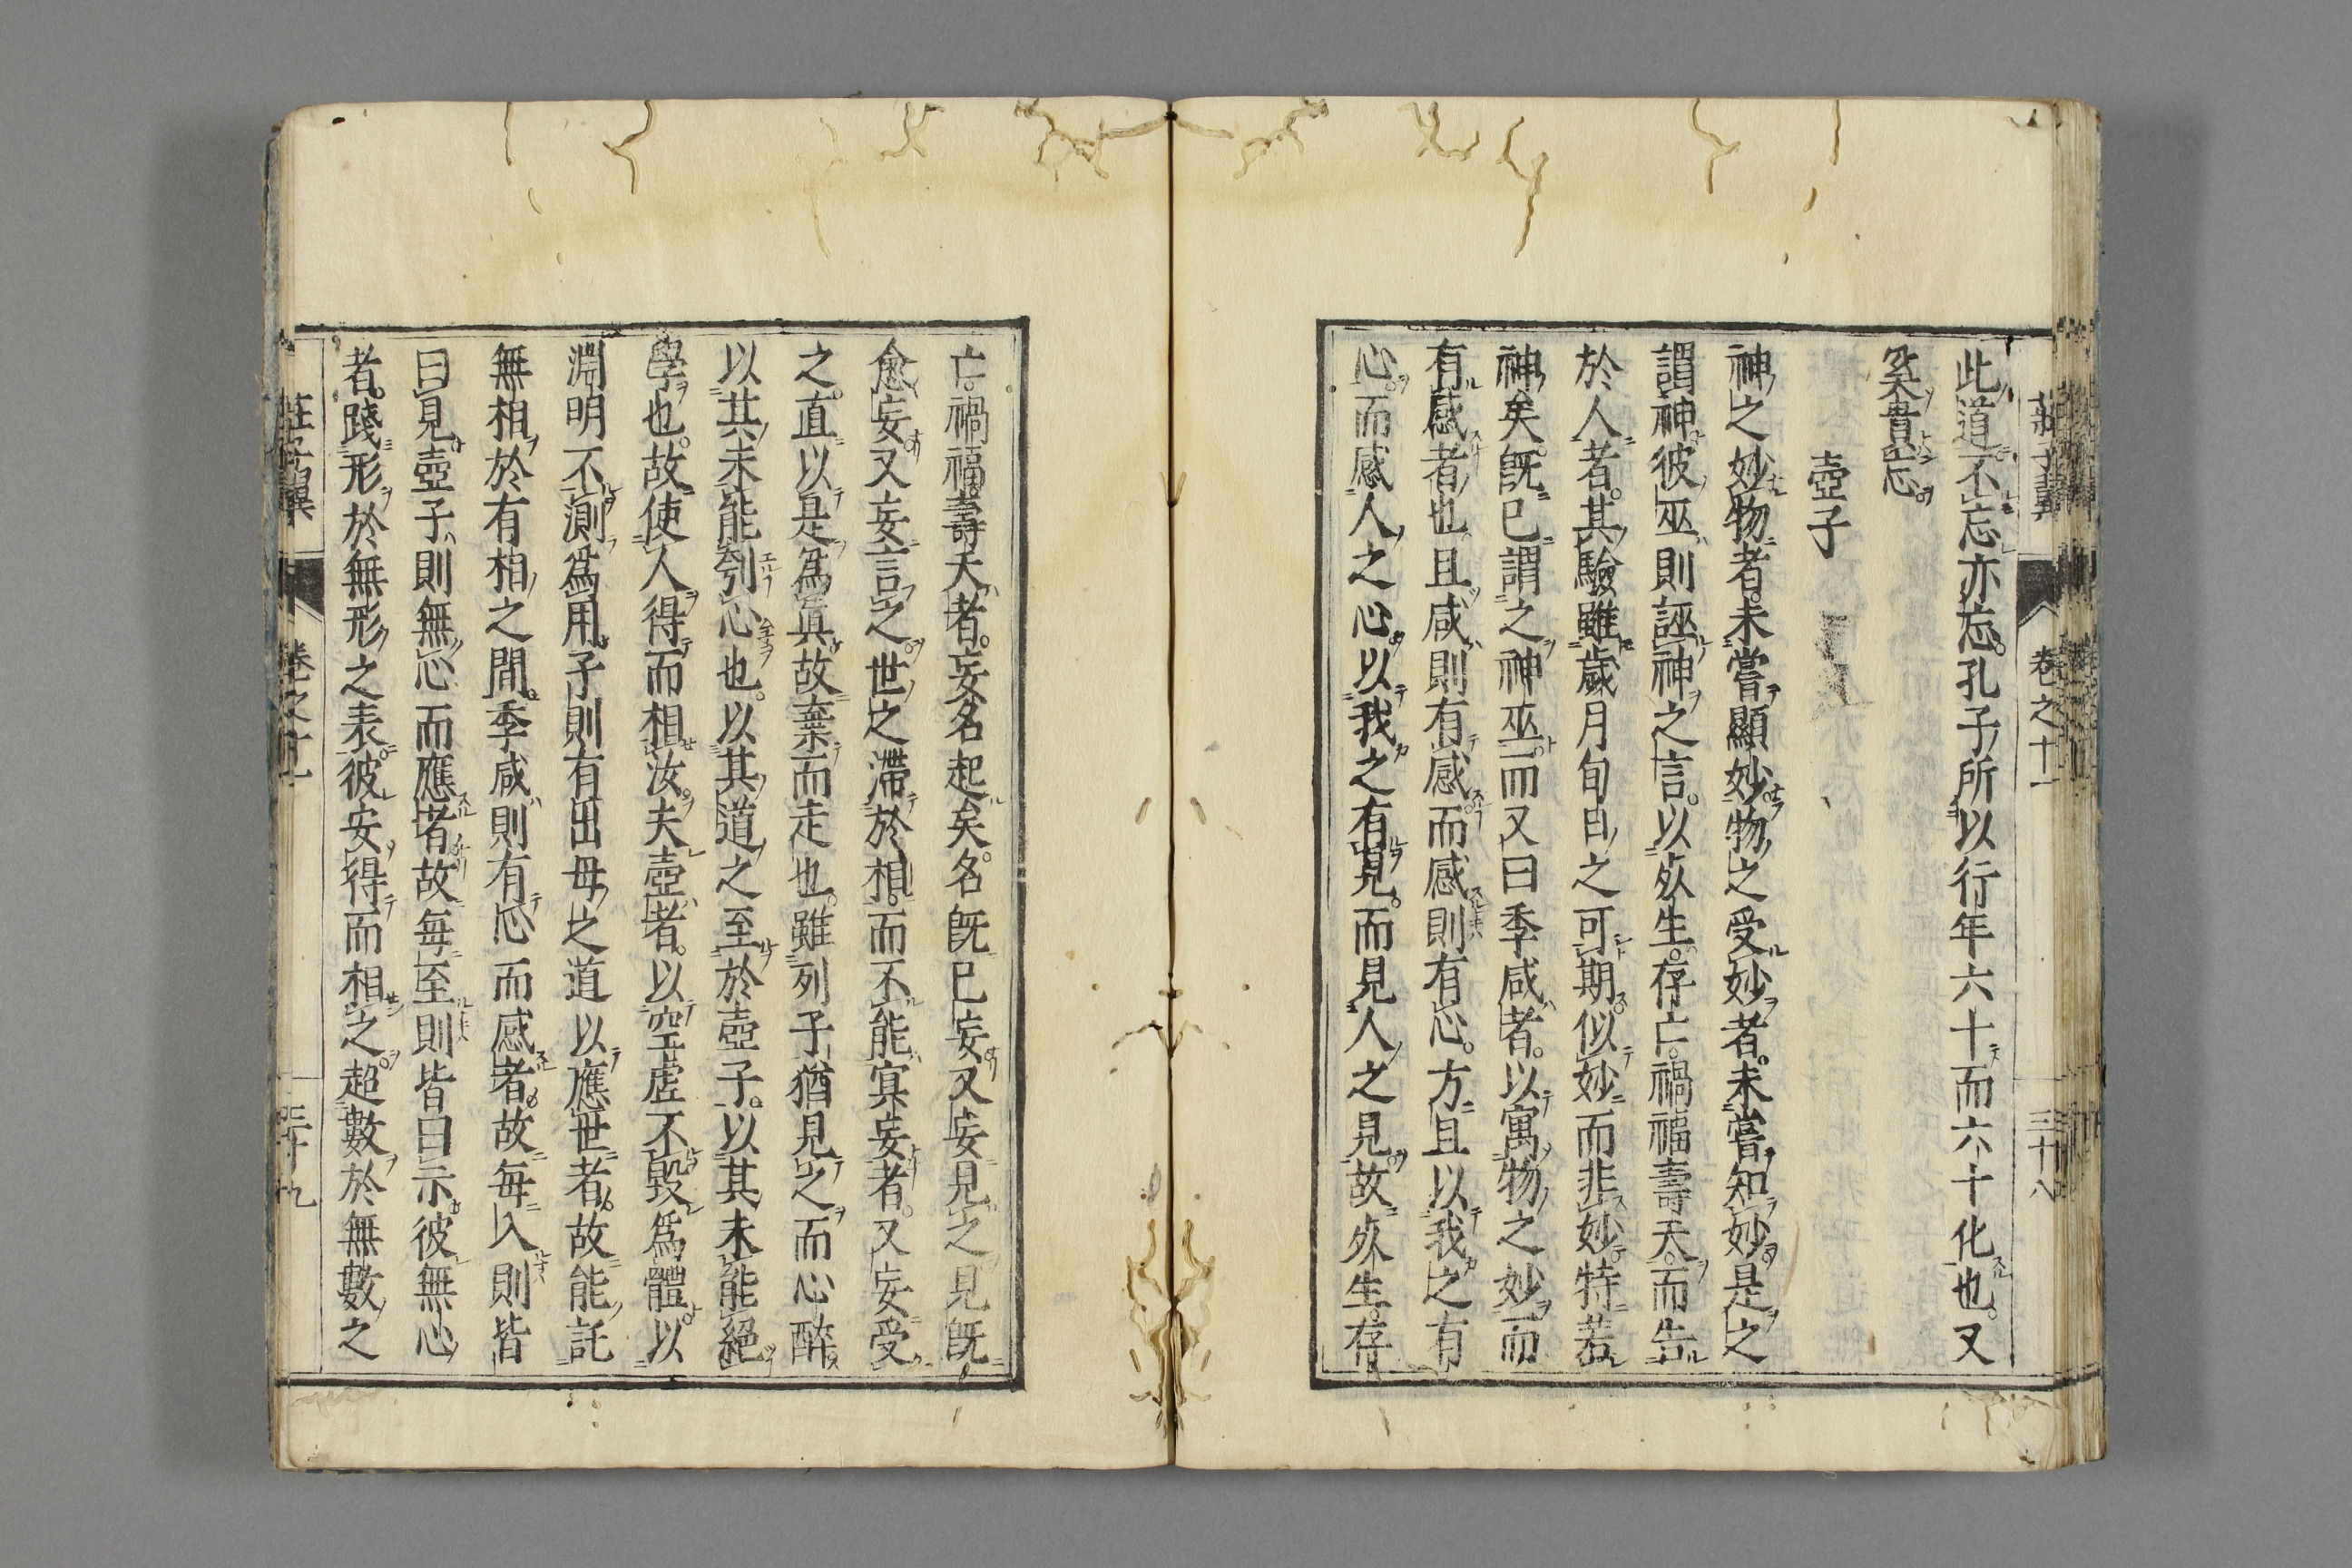 卷之十一
三十八
此道不忘亦忘。孔子所以行年六十而六十化也。又
奚貴忘。
壺子
神之妙物者。未嘗顯妙。物之受妙者。未嘗知妙。是之
謂神。彼巫則誣神之言。以死生。存亡。禍福壽夭。而告
於人者。其驗雖歲月旬日之可期。似妙而非妙。特若
神矣。既已謂之神巫。而又曰季咸者。以寓物之妙。而
有感者也。且咸則有感。而感則有心。方且以我之有
心。而感人之心。以我之有見。而見人之見。故死生。存
亡。禍福。壽夭者。妄名起矣。名既已妄。又妄見之。見既
愈妄。又妄言之。世之滯於相。而不能冥妄者。又妄受
之。直以是爲眞。故棄而走也。雖列子猶見之。而心醉。
以其未能刳心也。以其道之至於壺子。以其未能絕
學也。故使人得而相汝。夫壺者。以空虛不毀爲體。以
淵明不測爲用。子則有出母之道以應世者。故能託
無相於有相之間。季咸則有心而感者。故每入則皆
曰見壺子。則無心而應者。故每至則皆曰示彼無心
者。踐形於無形之表。彼安得而相之。超數於無數之
卷之十一
三十九